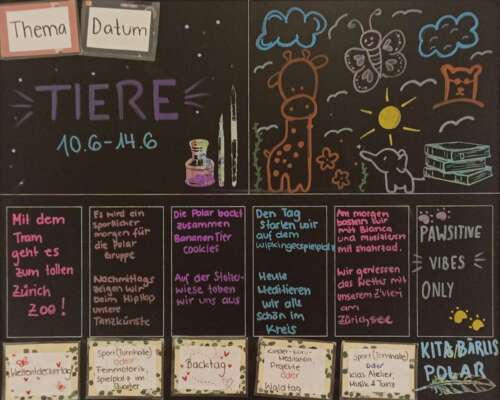 Thema
Datum
TIERE
10.6-14.6
Mit dem
Tram
geht es
zum tollen
Zürich
Zoo!
Es wird ein
sportlicher
morgen für
die Polar
Gruppe
Nachmittags
zeigen wir
beim HipHop
unsere
Tanzkünste
Die Polar backt
zusammen
Bananen Tier
cookies
Auf der
wiese toben
wir uns aus
Den Tag
starten wir
auf dem
Heute
Meditieren
wir alle
schön im
Kreis
Am morgen
basteln wir
mit Bianca
und musizieren
mit
Wir geniessen
das Wetter mit
unserem Z'vieri
am
Zürichsee
PAWSITIVE
VIBES
ONLY
Sport (Turnhalle)
oder
Feinmotorik,
Spielplatz im
Quartier
Backtag
Meditation,
Projekte
oder
Waldtag
Sport (Turnhalle)
oder
Atelier,
Musik & Tanz
KITA BÄRLIS
POLAR